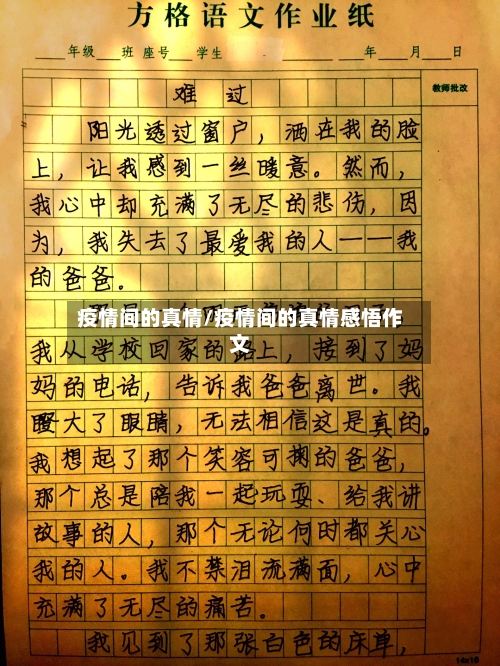 方格语文作业纸
年级 班 座号 学生 年 月 日
教师批改
难过
阳光透过窗户，洒在我的脸
上，让我感到一丝暖意。然而，
我心中却充满了无尽的悲伤，因
为，我失去了最爱我的人——我
的爸爸。
疫情间的真情/疫情间的真情感悟作
文
我从学校回家的路上，接到了妈
妈的电话，告诉我爸爸离世。我
瞪大了眼睛，无法相信这是真的。
我想起了那个笑容可掬的爸爸，
那个总是陪我一起玩耍、给我讲
故事的人，那个无论何时都关心
我的人。我不禁泪流满面，心中
充满了无尽的痛苦。
我见到了那张白色的床单，